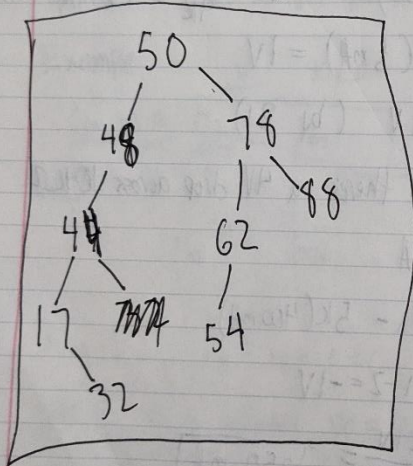 50
48 78
88
44 62
17 54
32